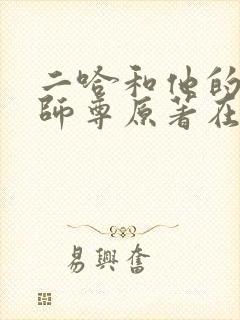 二哈和他的
師尊原著在
易興奮